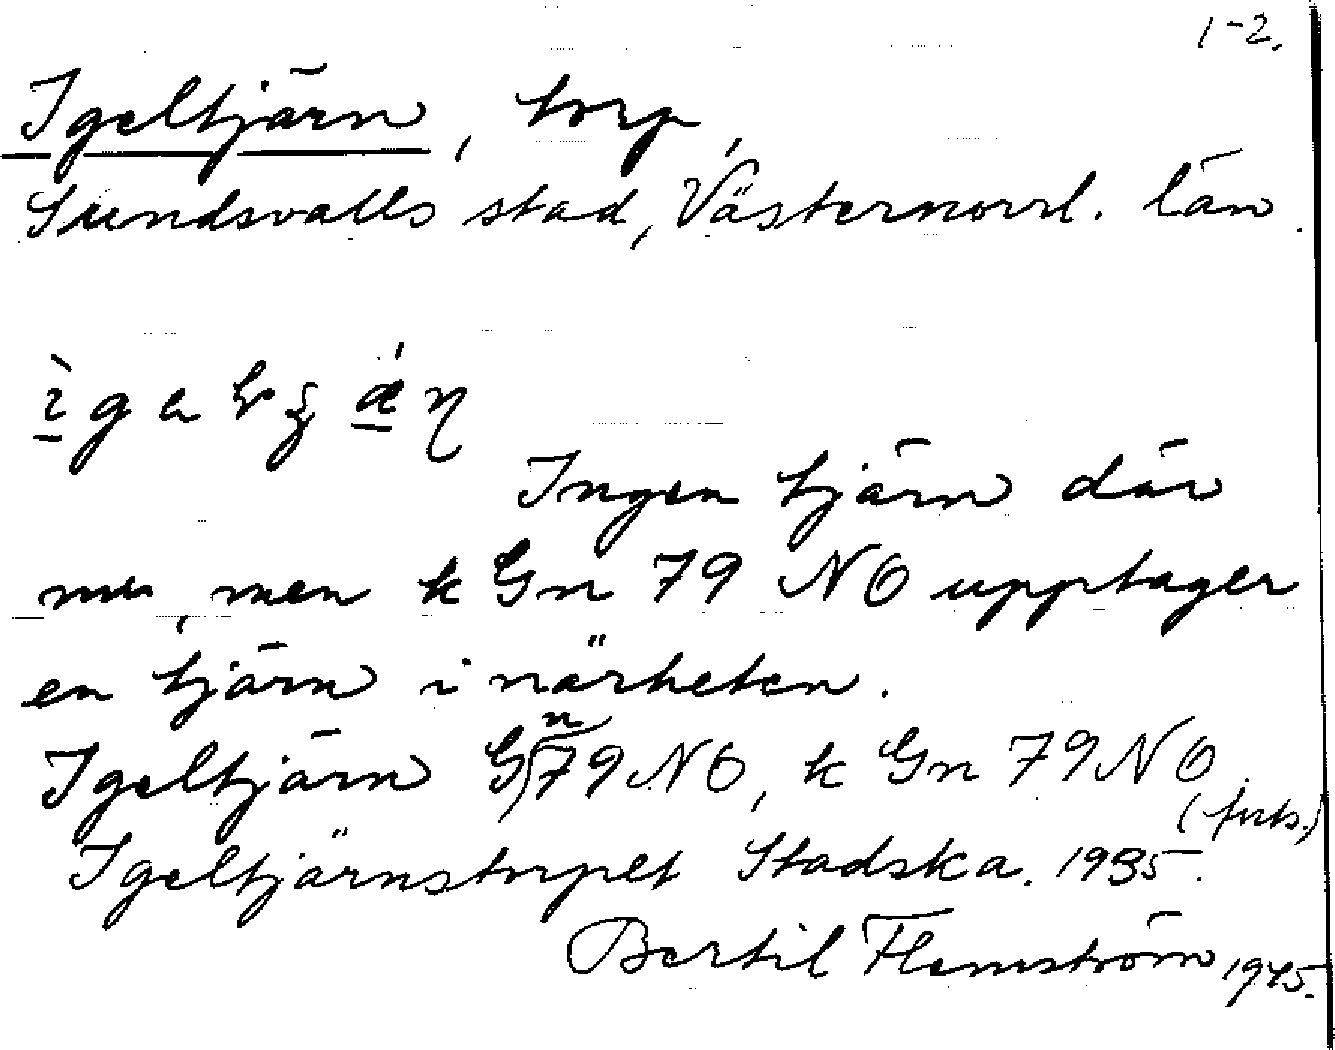 1-2.
Igeltjärn, torp,
Sundsvalls stad, Västernorrl. län.
Ingen tjärn där
nu, men k Gn 79 NO upptager
en tjärn i närheten.
Igeltjärn Gn 79 NO, k Gn 79 NO.
(forts.)
Igeltjärnstorpet Stadska. 1935.
Bertil Flemström 1945.